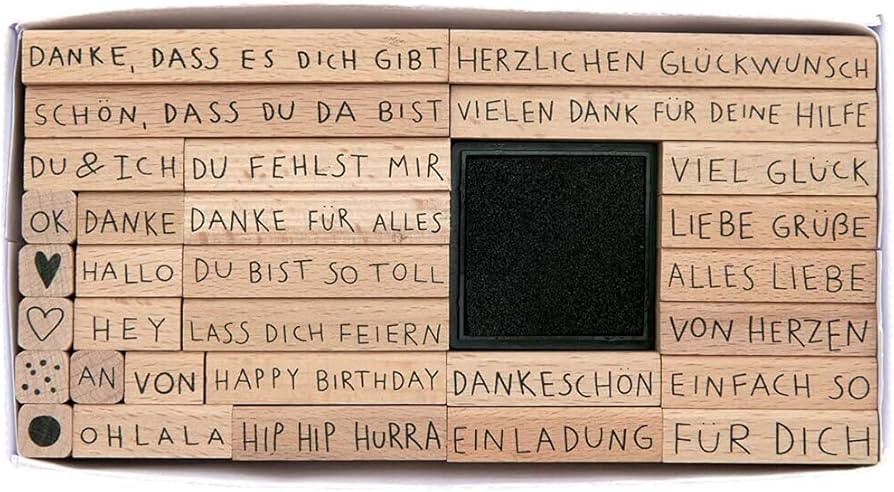 DANKE, DASS ES DICH GIBT
HERZLICHEN GLÜCKWUNSCH
SCHÖN, DASS DU DA BIST
VIELEN DANK FÜR DEINE HILFE
DU & ICH
DU FEHLST MIR
VIEL GLÜCK
OK
DANKE
DANKE FÜR ALLES
LIEBE GRÜßE
HALLO
DU BIST SO TOLL
ALLES LIEBE
HEY
LASS DICH FEIERN
VON HERZEN
AN
VON
HAPPY BIRTHDAY
DANKESCHÖN
EINFACH SO
OHLALA
HIP HIP HURRA
EINLADUNG
FÜR DICH